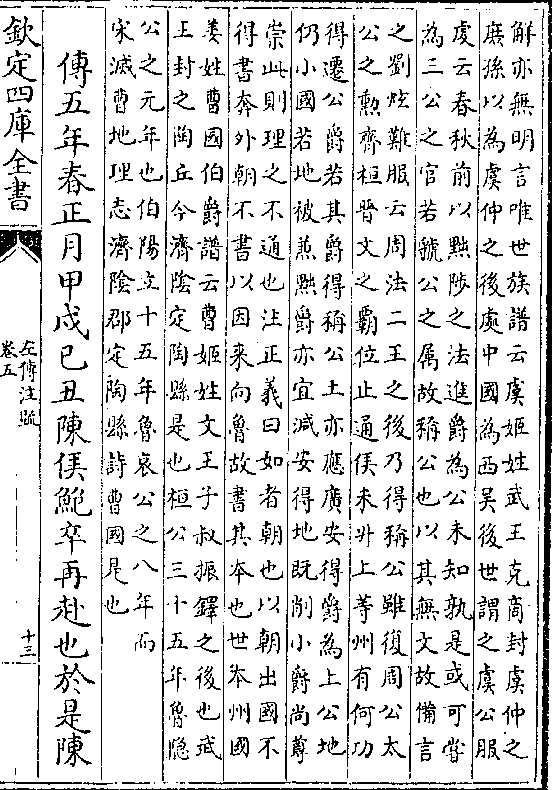 解亦無明言唯世族譜云虞姬姓武王克商封虞仲之
庶孫以為虞仲之後處中國為西吳後世謂之虞公服
虔云春秋前以黜陟之法進爵為公未知孰是或可嘗
為三公之官若虢公之属故稱公也以其無文故備言
之劉炫難服云周法二王之後乃得稱公雖復周公太
公之勲齊桓晉文之覇位止通侯未升上等州有何功
得遷公爵若其爵得稱公土亦應廣安得爵為上公地
仍小國若地被兼黜爵亦宜減安得地既削小爵尚尊
崇此則理之不通也注正義曰如者朝也以朝出國不
得書奔外朝不書以因来向魯故書其本也世本州國
姜姓曹國伯爵譜云曹姬姓文王子叔振鐸之後也武
王封之陶丘今濟陰定陶縣是也桓公三十五年魯隱
公之元年也伯陽立十五年魯哀公之八年而
宋滅曹地理志濟陰郡定陶縣詩曹國是也
傳五年春正月甲戌己丑陳侯鮑卒再赴也於是陳
欽定四庫全書
左傳注疏
卷五
十三